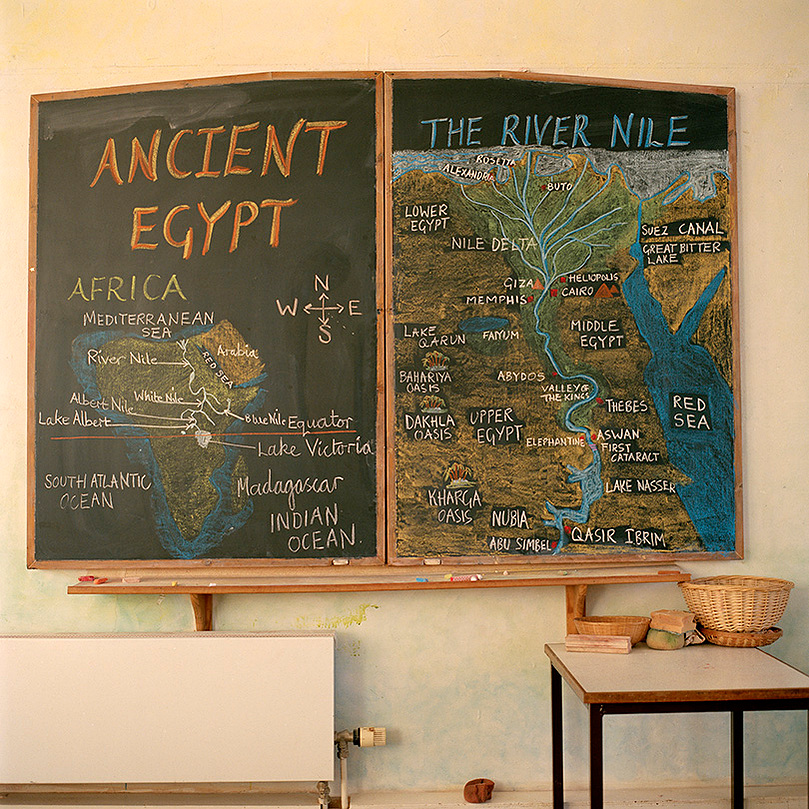 ANCIENT
EGYPT
AFRICA
N
W E
S
MEDITERRANEAN
SEA
River Nile
RED SEA
Arabia
White Nile
Albert Nile
Lake Albert
Blue Nile
Equator
Lake Victoria
SOUTH ATLANTIC
OCEAN
Madagascar
INDIAN
OCEAN
THE RIVER NILE
ROSETTA
ALEXANDRIA
BUTO
LOWER
EGYPT
NILE DELTA
SUEZ CANAL
GREAT BITTER
LAKE
GIZA
HELIOPOLIS
MEMPHIS
CAIRO
LAKE
QARUN
FAIYUM
MIDDLE
EGYPT
BAHARIYA
OASIS
ABYDOS
VALLEY OF
THE KINGS
THEBES
RED
SEA
DAKHLA
OASIS
UPPER
EGYPT
ELEPHANTINE
ASWAN
FIRST
CATARACT
KHARGA
OASIS
LAKE NASSER
NUBIA
ABU SIMBEL
QASIR IBRIM